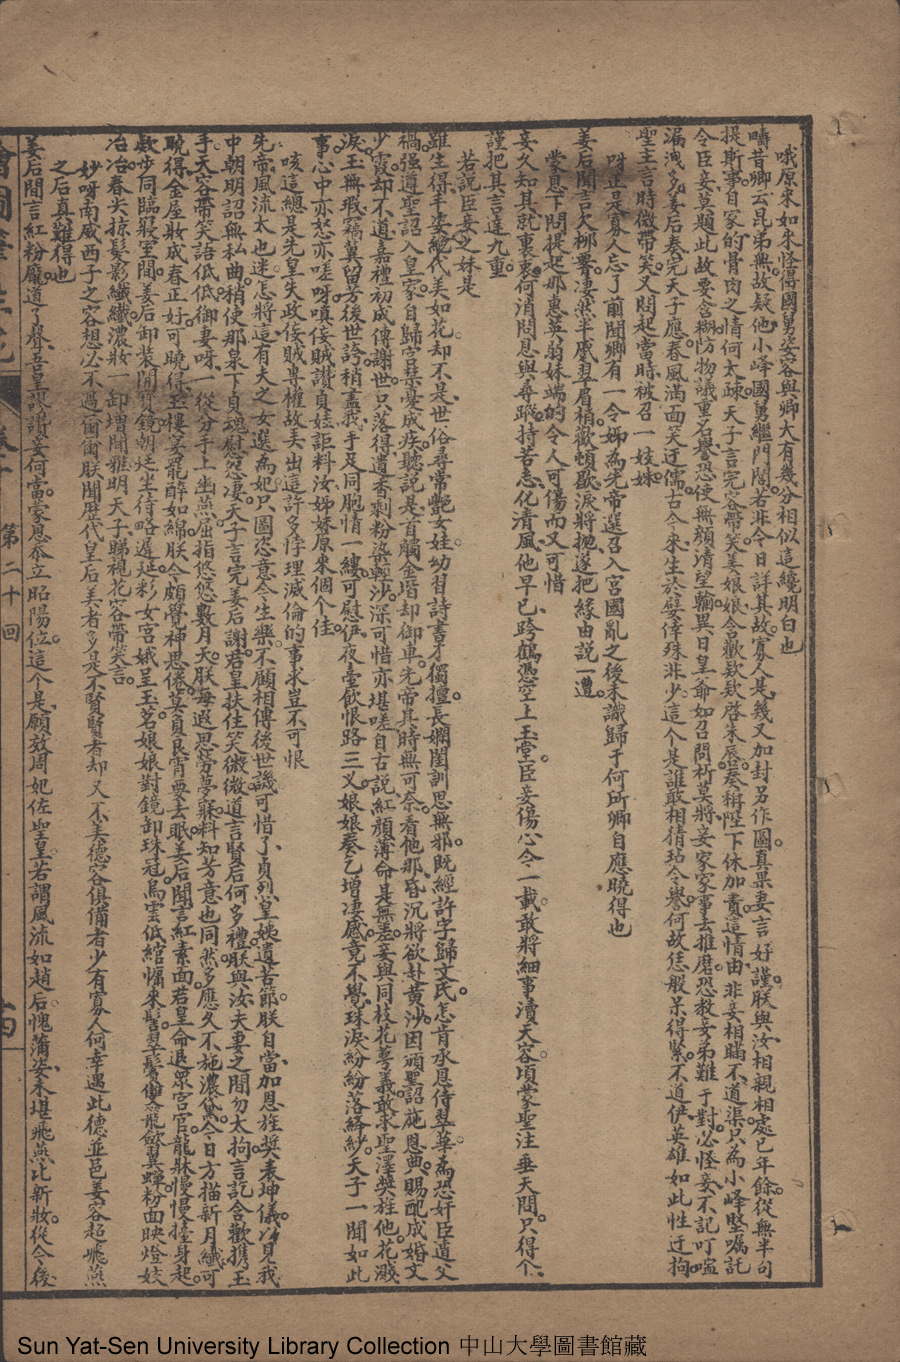 哦原來如朱怪得國舅姿容與卿大有幾分相似這纔明白也
疇昔卿云昆弟無故疑他小峰國舅繼門閥若非今日詳其故寡人是幾又加封另作圖真果妻言好謹朕與汝相親相處已年餘從無半句
提斯事自家的骨肉之情何太疎天子言完容帶笑姜娘娘含歡欵欵啓朱唇奏稱陛下休加責這情由非妾相瞞不道渠只為小峰堅囑託
令臣妾莫題此故要含糊防物議重名譽恐使無顏清望翰異日皇爺如召問祈莫將妾家家事去推磨恐教妾弟難于對必怪妾不記叮嚀
漏洩多姜后奏完天子應春風滿面笑迂儒古今來生於孽倖殊非少這個是誰敢相猜玷令譽何故恁般呆得緊不道伊英雄如此性迂拘
聖主言時微帶笑又問起當時被召一妓妹
呀正是寡人忘了前聞卿有一令姊為先帝選召入宮國亂之後未識歸于何所卿自應曉得也
姜后聞言欠柳腰凄然半蹙翠眉梢歡頓歇淚將拋遂把緣由說一遭
蒙恩下問提起那惠英弱妹端的令人可傷而又可惜
妾久知其就裏衷何消問息與尋踪持苦志化清風他早已跨鶴憑空上玉堂臣妾傷心今一載敢將細事瀆天容頃蒙聖注垂天問只得个
謹把其言達九重
若說臣妾之妹是
雖生得丰姿絕代美如花却不是世俗尋常艷女娃幼習詩書才獨擅長嫻閨訓思無邪既經許字歸文氏怎肯承恩侍翠華為恐奸臣遺父
禍强遵聖詔入皇家自歸宮禁憂成疾聽說是首觸金堦却御車先帝其時無可奈看他那昏沉將欲赴黃沙因頒聖詔施恩典賜配成婚文
少霞却不道嘉禮初成傳謝世只落得遺香剩粉染輕沙深可惜亦堪嗟自古說紅顏薄命是無差妾與同枝花萼義敢求聖澤獎旌他花濺
淚玉無瑕竊冀留芳後世誇稍盡我手足同胞情一縷可慰伊夜臺飲恨路三义娘娘奏乞增凄感竟不覺珠淚紛紛落絳紗天子一聞如此
事心中亦怒亦嗟呀嗔佞賊讚貞娃詎料汝姊妹原來個个佳
咳這總是先皇失政佞賊專權故丢出這許多悖理滅倫的事求豈不可恨
先帝風流太也迷怎將這有夫之女選為妃只圖恣意今生樂不顧相傳後世譏可惜了貞烈皇姨遺苦節朕自當加恩旌獎表坤儀汾見我
中朝明詔無私曲稍使那泉下貞魂慰怨凄天子言完姜后謝君皇扶住笑微微道言賢后何多禮朕與汝夫妻之間勿太拘言訖含歡携玉
手天容帶笑語低低御妻呀一從分手上幽燕屈指悠悠數月天朕每遐思勞夢寐料知芳意也同然多應久不施濃黛今日方描新月纖可
曉得金屋妝成春正好可曉得玉樓宴罷醉如綿朕今頗覺神思倦莫負良宵要去眠姜后聞言紅素面若皇命退眾宮官龍牀慢慢擡身起
欵步同臨寢室間姜后卸装閒寳鏡朝廷坐待略遲延彩女宮娥呈玉茗娘娘對鏡卸珠冠烏雲低綰慵來髻翠鬢雙龍斂翼蟬粉面映燈妶
冶冶春尖掠髮影纖纖濃妝一卸增閒雅明天子睇視花容帶笑言
妙呀南威西子之容想必不過爾爾朕聞歷代皇后美者多是不賢賢者却又不美德容俱備者少有寡人何幸遇此德並邑姜容超飛燕
之后真難得也
姜后聞言紅粉龐道了聲吾皇謬讃妾何當蒙恩忝立昭陽位這个是願效周妃佐聖皇若謂風流如趙后愧蒲姿未堪飛燕比新妝從今後
第二十回
Sun Yat-Sen University Library Collection 中山大學圖書館藏